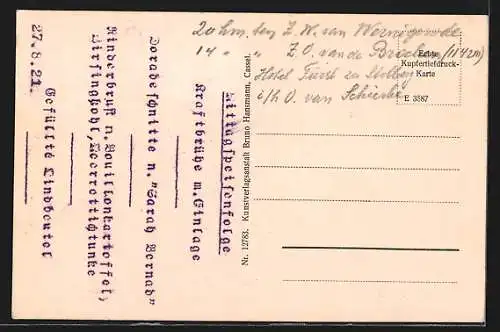 20 km. den Z. W. van Wernigerode
14 " " Z. O. van de Brocken (1142m)
Hotel Fürst zu Stolberg
i/h O. van Schierke
Echte
Kupfertiefdruck-
Karte
E 3587
Nr. 12783. Kunstverlagsanstalt Bruno Hansmann, Cassel.
Mittagspeisenfolge
Kraftbrühe m. Einlage
Doradeschnitte n. "Sarah Bernad"
Rinderbrust n. Bouillonkartoffel,
Wirsingkohl, Meerrettichtunke
Gefüllte Windbeutel
27.8.21.